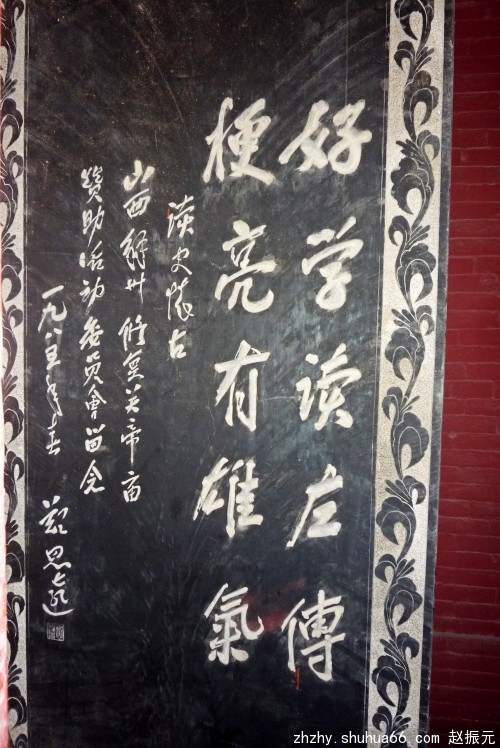 好学读左傳
梗亮有雄氣
读史怀古
山西解州修复关帝庙
赞助活动委员會留念
一九八五年春 郑思远
zhzhy.shuhua66.com 赵振元